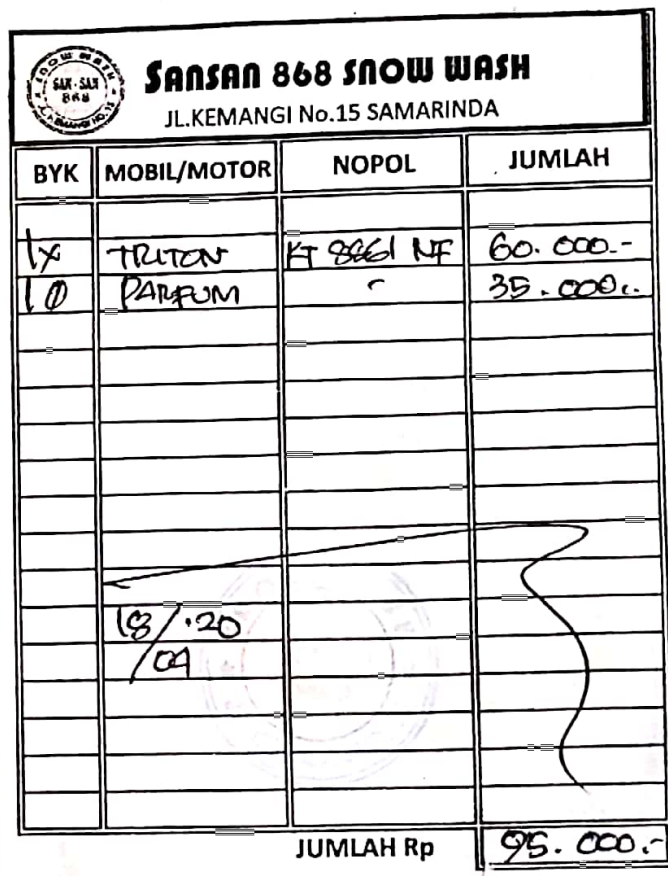 SNOW WASH
SAN-SAN
868
SANSAN 868 SNOW WASH
JL.KEMANGI No.15 SAMARINDA
BYK MOBIL/MOTOR NOPOL JUMLAH
1x TRITON KT 8861 NF 60.000.-
1 PARFUM " 35.000..
18/ .20
/04
JUMLAH Rp 95.000.-